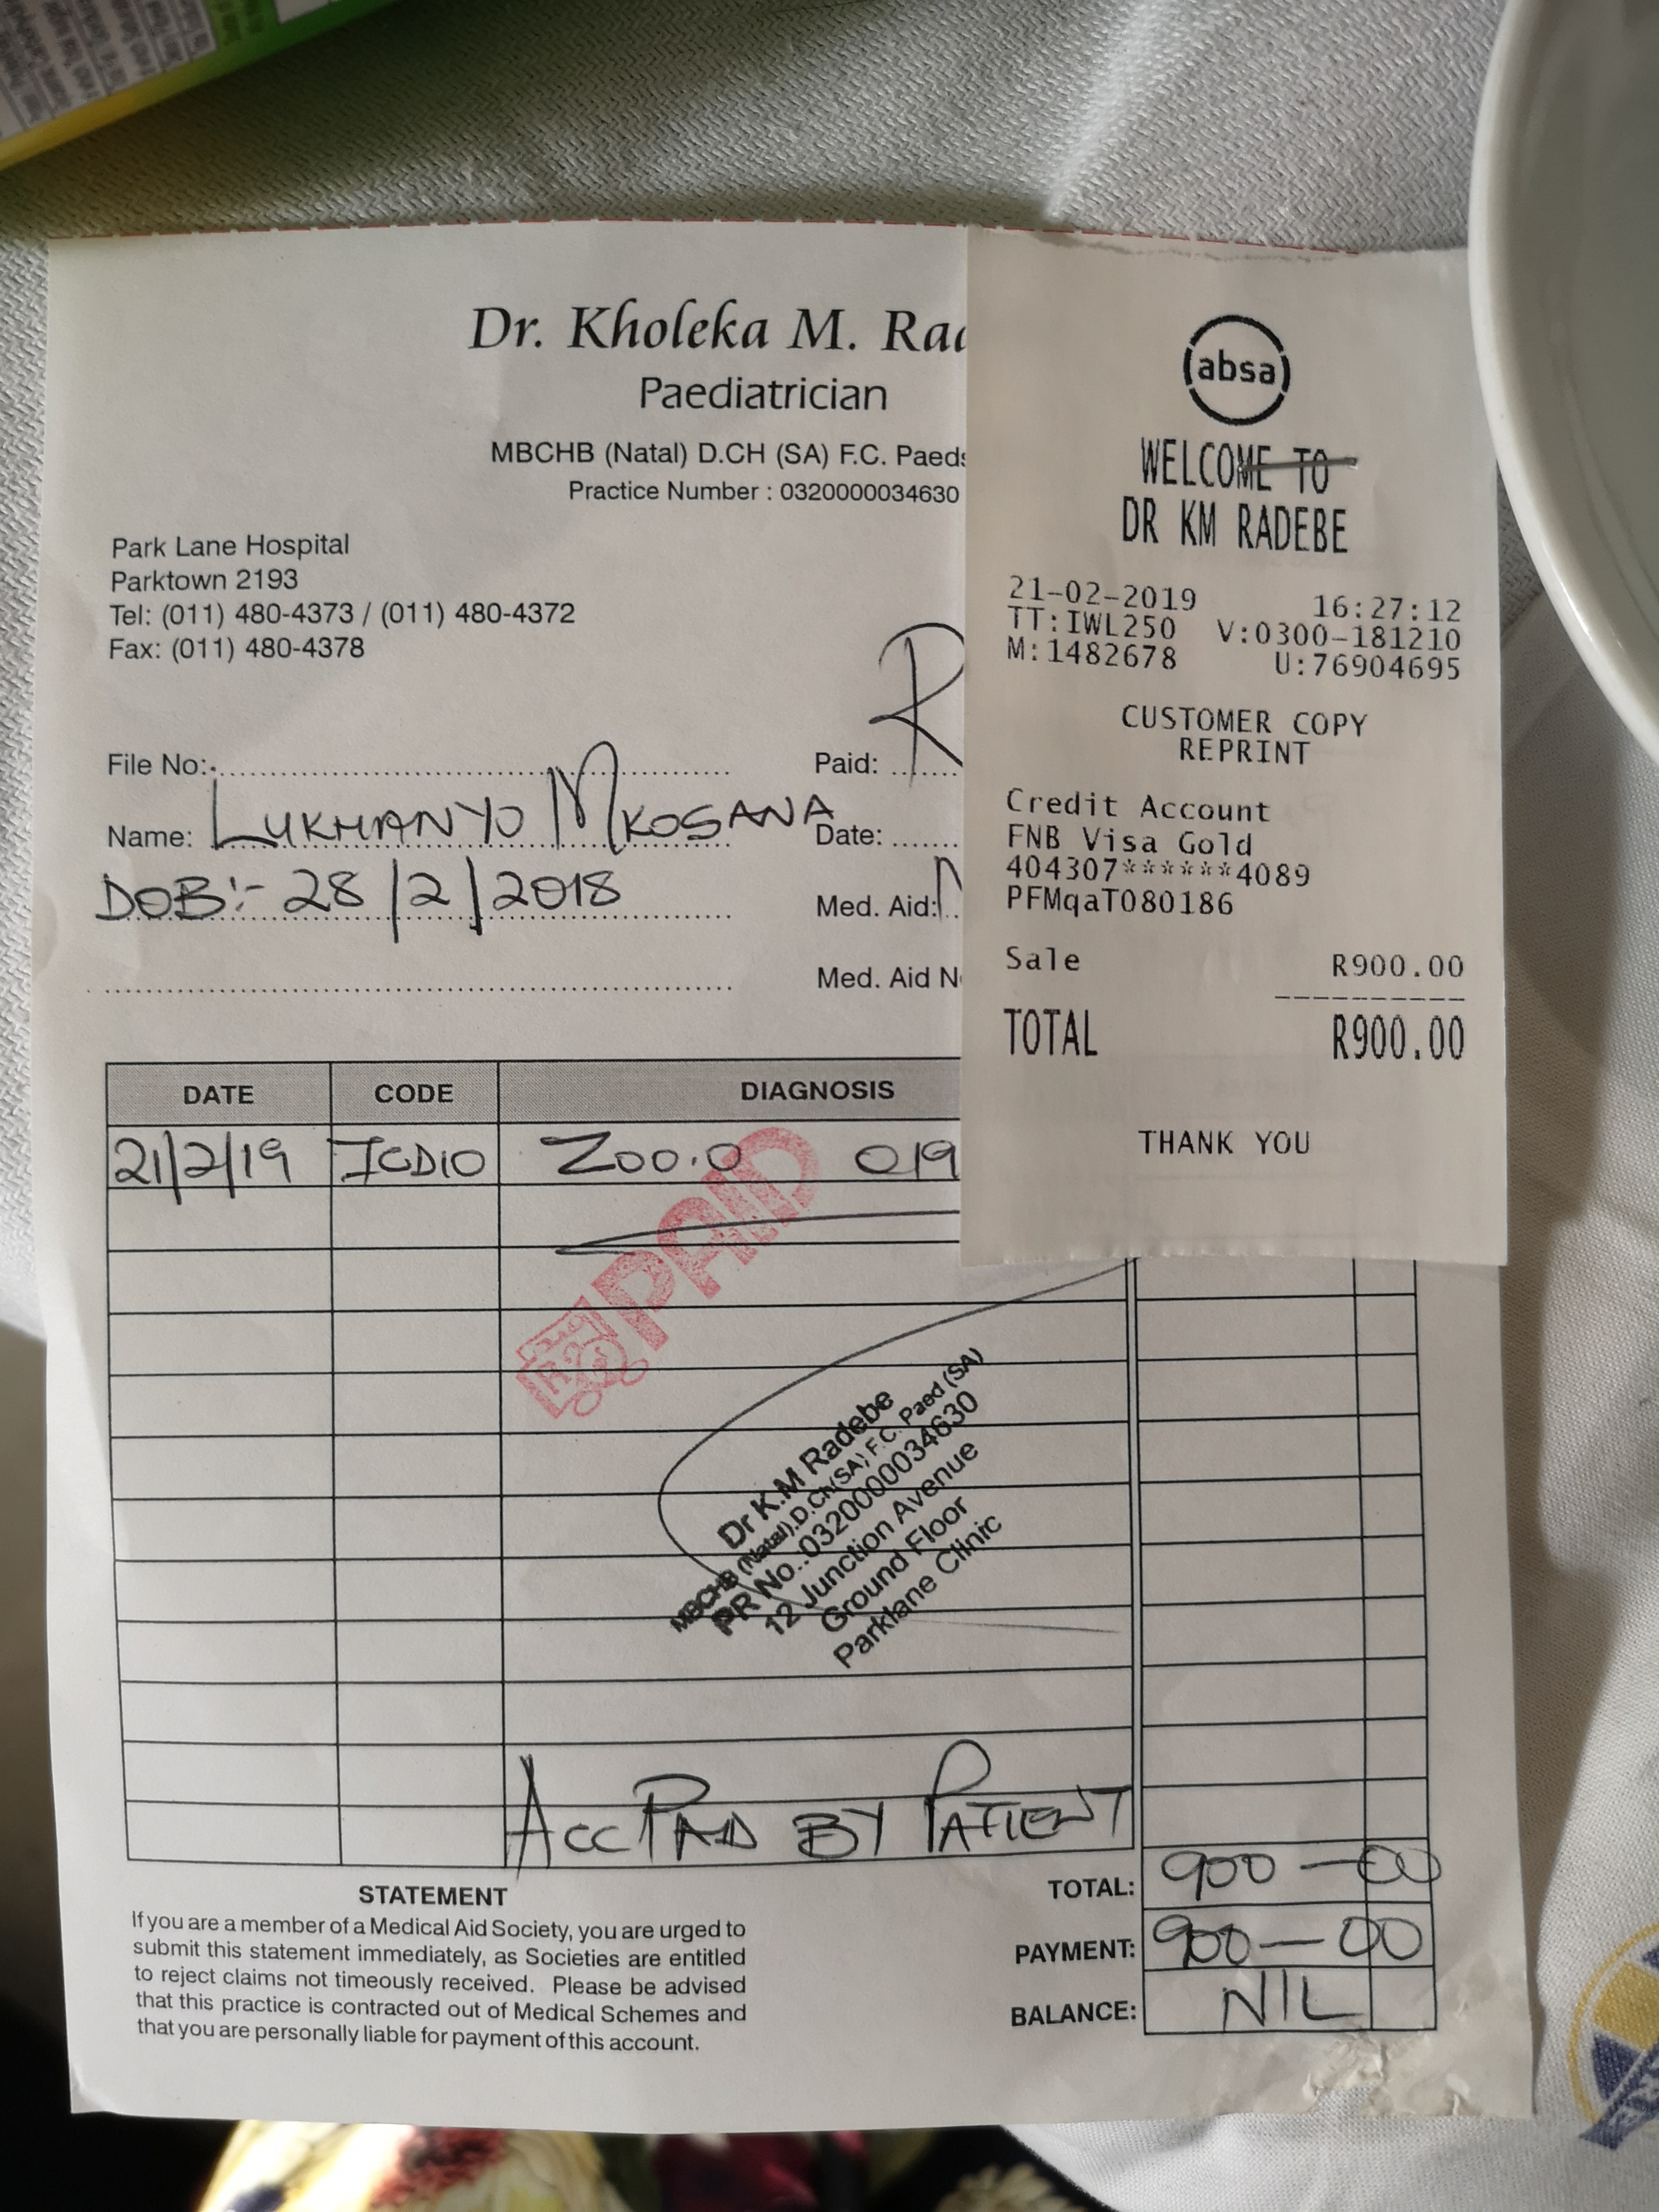 Dr. Kholeka M. Rad
Paediatrician
MBCHB (Natal) D.CH (SA) F.C. Paeds
Practice Number : 0320000034630
Park Lane Hospital
Parktown 2193
Tel: (011) 480-4373 / (011) 480-4372
Fax: (011) 480-4378
File No:
Paid: R
Name: LUKHANYO MKOSANA
Date:
DOB:- 28/2/2018
Med. Aid: N
Med. Aid N
DATE CODE DIAGNOSIS
21/2/19 ICD10 Z00.0 019
PAID
Dr K.M Radebe
MBCHB (Natal).D.Ch(SA) F.C. Paed (SA)
PR No.:0320000034630
12 Junction Avenue
Ground Floor
Parklane Clinic
ACC PAID BY PATIENT
TOTAL: 900-00
PAYMENT: 900-00
BALANCE: NIL
STATEMENT
If you are a member of a Medical Aid Society, you are urged to
submit this statement immediately, as Societies are entitled
to reject claims not timeously received. Please be advised
that this practice is contracted out of Medical Schemes and
that you are personally liable for payment of this account.
absa
WELCOME TO
DR KM RADEBE
21-02-2019 16:27:12
TT:IWL250 V:0300-181210
M:1482678 U:76904695
CUSTOMER COPY
REPRINT
Credit Account
FNB Visa Gold
404307******4089
PFMqaT080186
Sale R900.00
TOTAL R900.00
THANK YOU